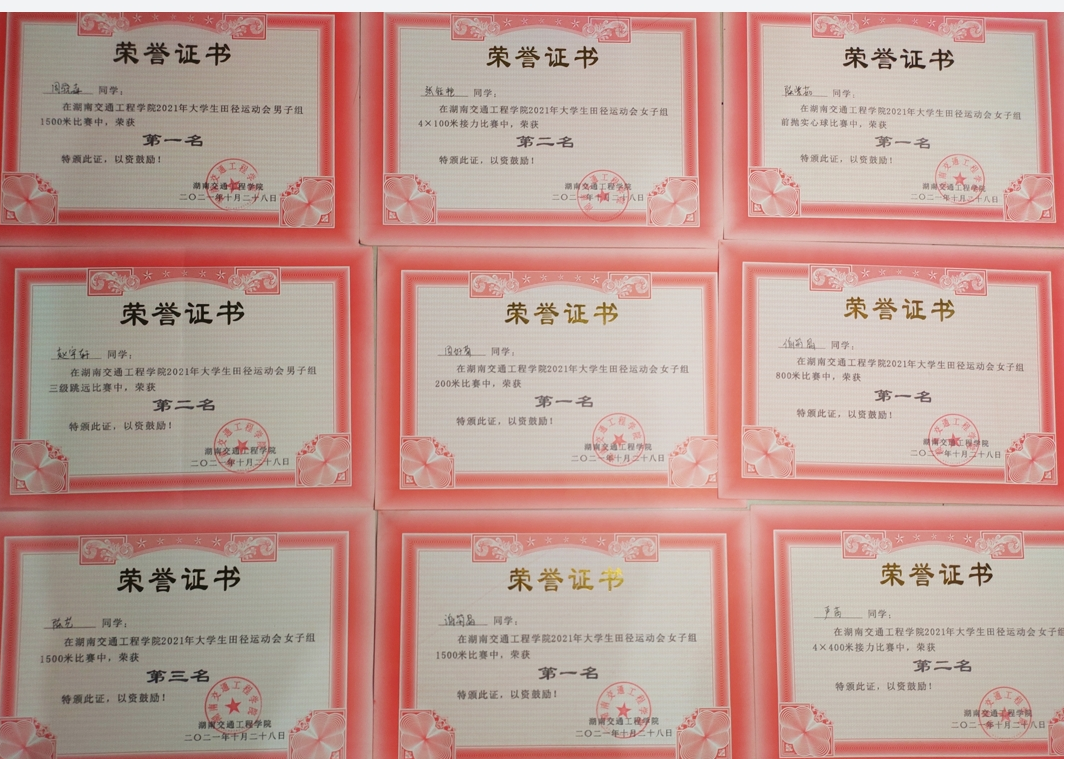 荣誉证书
同学：
在湖南交通工程学院2021年大学生田径运动会男子组
1500米比赛中，荣获
第一名
特颁此证，以资鼓励！
湖南交通工程学院
二〇二一年十月二十八日
荣誉证书
同学：
在湖南交通工程学院2021年大学生田径运动会女子组
4×100米接力比赛中，荣获
第二名
特颁此证，以资鼓励！
湖南交通工程学院
二〇二一年十月二十八日
荣誉证书
同学：
在湖南交通工程学院2021年大学生田径运动会女子组
前抛实心球比赛中，荣获
第一名
特颁此证，以资鼓励！
湖南交通工程学院
二〇二一年十月二十八日
荣誉证书
赵宇轩 同学：
在湖南交通工程学院2021年大学生田径运动会男子组
三级跳远比赛中，荣获
第二名
特颁此证，以资鼓励！
湖南交通工程学院
二〇二一年十月二十八日
荣誉证书
同学：
在湖南交通工程学院2021年大学生田径运动会女子组
200米比赛中，荣获
第一名
特颁此证，以资鼓励！
湖南交通工程学院
二〇二一年十月二十八日
荣誉证书
同学：
在湖南交通工程学院2021年大学生田径运动会女子组
800米比赛中，荣获
第一名
特颁此证，以资鼓励！
湖南交通工程学院
二〇二一年十月二十八日
荣誉证书
陈艺 同学：
在湖南交通工程学院2021年大学生田径运动会女子组
1500米比赛中，荣获
第三名
特颁此证，以资鼓励！
湖南交通工程学院
二〇二一年十月二十八日
荣誉证书
同学：
在湖南交通工程学院2021年大学生田径运动会女子组
1500米比赛中，荣获
第一名
特颁此证，以资鼓励！
湖南交通工程学院
二〇二一年十月二十八日
荣誉证书
同学：
在湖南交通工程学院2021年大学生田径运动会女子组
4×400米接力比赛中，荣获
第二名
特颁此证，以资鼓励！
湖南交通工程学院
二〇二一年十月二十八日